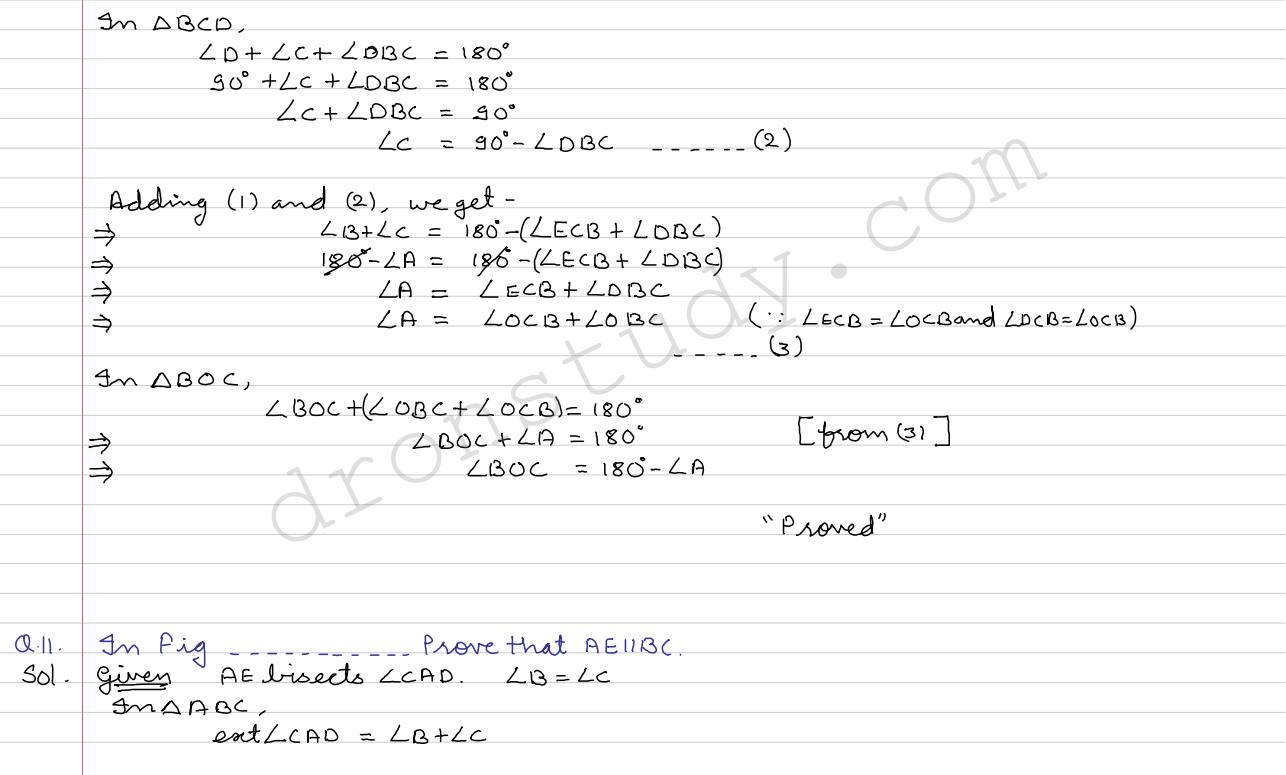 In △BCD,
∠D + ∠C + ∠DBC = 180°
90° + ∠C + ∠DBC = 180°
∠C + ∠DBC = 90°
∠C = 90° - ∠DBC ------ (2)
Adding (1) and (2), we get -
⇒ ∠B+∠C = 180° - (∠ECB + ∠DBC)
⇒ 180° - ∠A = 180° - (∠ECB + ∠DBC)
⇒ ∠A = ∠ECB + ∠DBC
⇒ ∠A = ∠OCB + ∠OBC (∵ ∠ECB = ∠OCB and ∠DCB = ∠OCB)
------ (3)
In △BOC,
∠BOC + (∠OBC + ∠OCB) = 180°
⇒ ∠BOC + ∠A = 180° [from (3)]
⇒ ∠BOC = 180° - ∠A
"Proved"
Q.11. In Fig ----------- Prove that AE||BC.
Sol. Given AE bisects ∠CAD. ∠B = ∠C
In △ABC,
ext∠CAD = ∠B+∠C
dronstudy.com